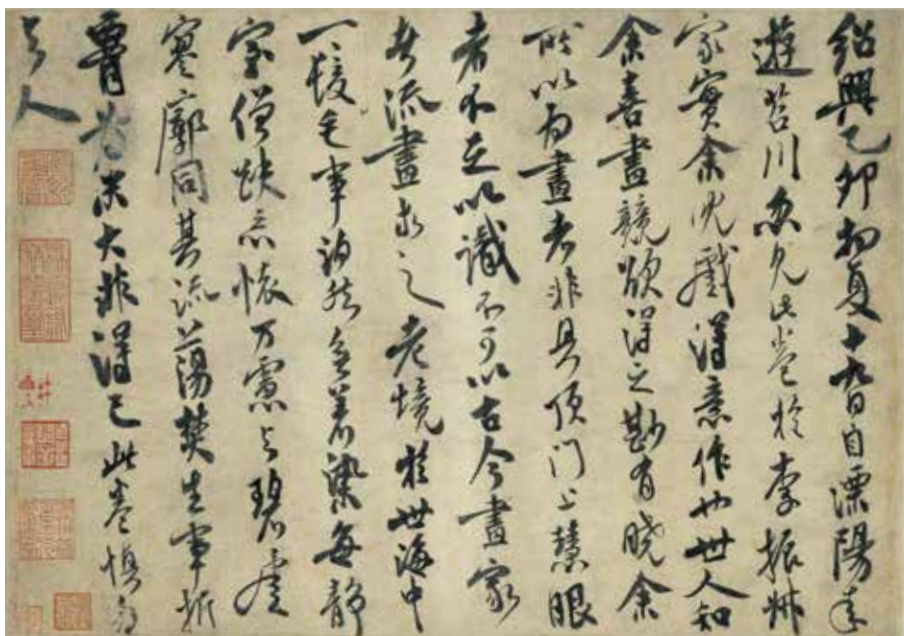 紹興乙卯初夏十九日自溧陽來
遊苕川忽見此卷於李振叔
家實余兒戲得意作也世人知
余喜畫競欲得之尠有曉余
所以為畫者非具頂門上慧眼
者不足以識不可以古今畫家
者流畫求之老境於世海中
一髮毛事泊然無著染每靜
室僧趺忘懷万慮与碧虛
寥廓同其流蕩焚生事折
腰為米大非得已此卷慎勿
与人